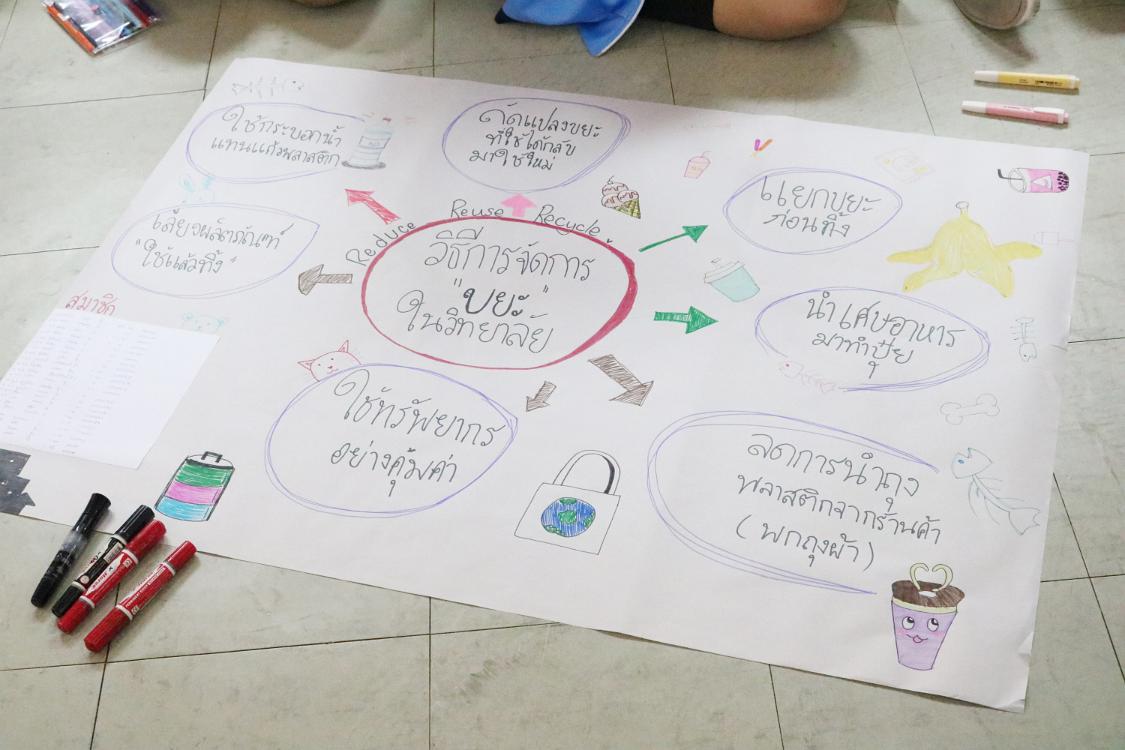 ใช้กระบอกน้ำ
แทนแก้วพลาสติก
ดัดแปลงขยะ
ที่ใช้ได้กลับ
มาใช้ใหม่
แยกขยะ
ก่อนทิ้ง
เลี่ยงผลิตภัณฑ์
"ใช้แล้วทิ้ง"
Reduce Reuse Recycle
วิธีการจัดการ
"ขยะ"
ในวิทยาลัย
นำเศษอาหาร
มาทำปุ๋ย
สมาชิก
ใช้ทรัพยากร
อย่างคุ้มค่า
ลดการนำถุง
พลาสติกจากร้านค้า
(พกถุงผ้า)